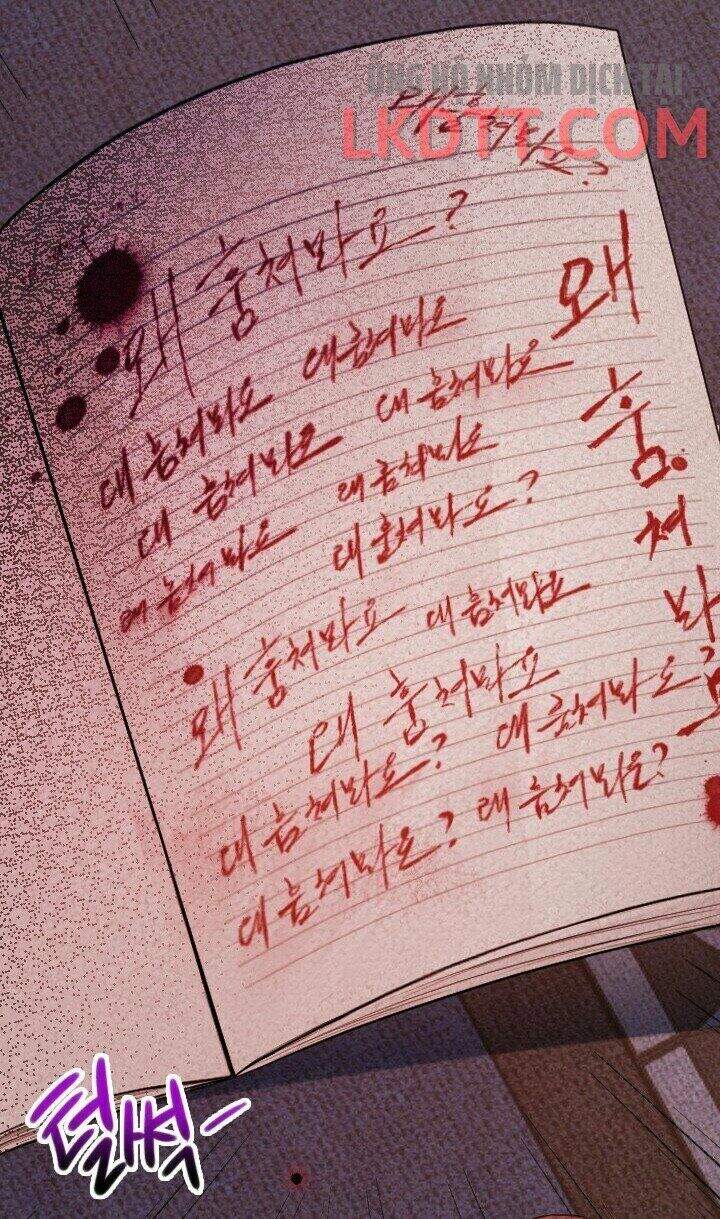 ỦNG HỘ NHÓM DỊCH TẠI
LKDTT.COM
왜 훔쳐봐요?
왜 훔쳐봐요?
왜 훔쳐봐요
왜 훔쳐봐요 왜 훔쳐봐요
왜 훔쳐봐요 왜 훔쳐봐요
왜 훔쳐봐요 왜 훔쳐봐요?
왜 훔쳐봐요 왜 훔쳐봐요
왜 훔쳐봐요
왜 훔쳐봐요? 왜 훔쳐봐요?
왜 훔쳐봐요? 왜 훔쳐봐요?
왜 훔쳐봐요
털썩